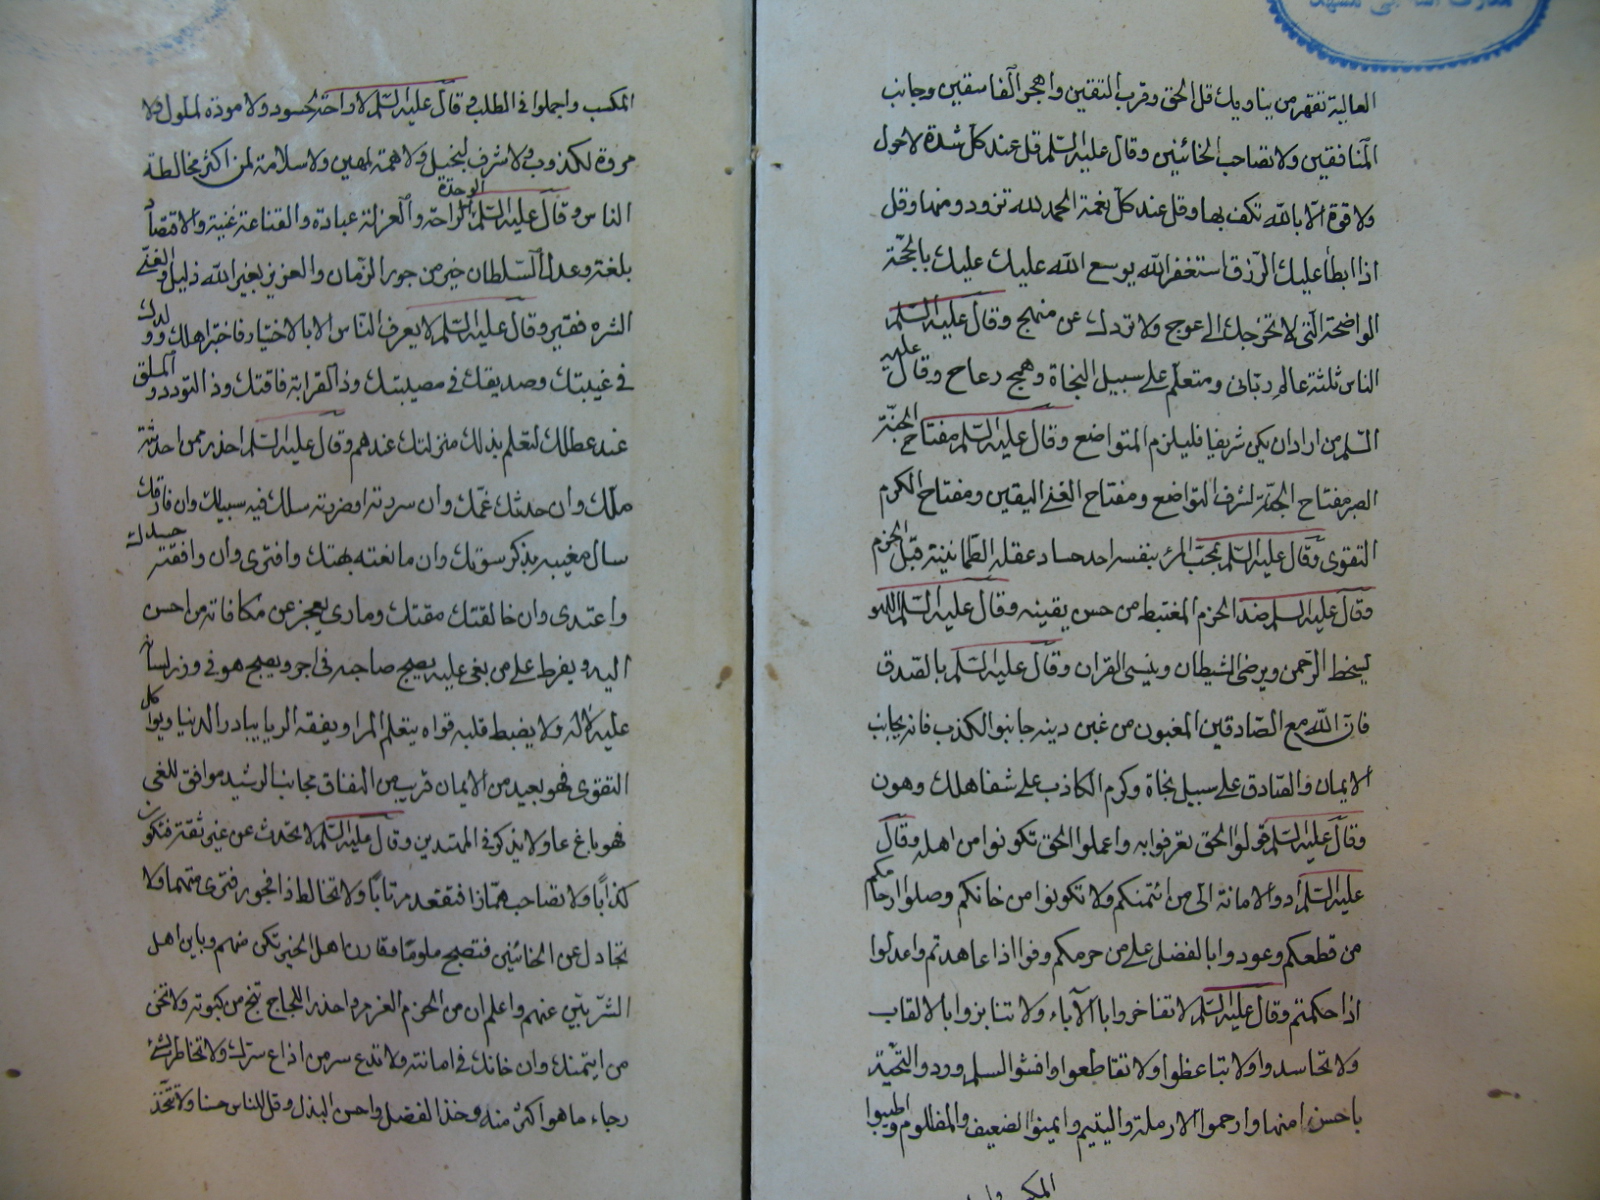 العالية تقهر من يناويك قل الحق وقرب المتقين واهجر الفاسقين وجانب
المنافقين ولا تصاحب الخائنين وقال عليه السلم قل عند كل شدة لا حول
ولا قوة الا بالله تكف بها وقل عند كل نعمة الحمد لله تزود منها وقل
اذا ابطأ عليك الرزق استغفر الله يوسع الله عليك عليك بالمحجة
الواضحة التى لا تخرجك الى عوج ولا تردك عن منهج وقال عليه السلم
الناس ثلثة عالم ربانى ومتعلم على سبيل النجاة وهمج رعاح وقال عليه
السلم من اراد ان يكن شريفا فليلزم المتواضع وقال عليه السلم مفتاح الجنة
الصبر مفتاح الجنة لشرف التواضع ومفتاح الغنى اليقين ومفتاح الكرم
التقوى وقال عليه السلم عجب المرء بنفسه احد حساد عقله الطمانينة قبل الحزم
وقال عليه السلم ضد الحزم المغتبط من حسن يقينه وقال عليه السلم اللهو
يسخط الرحمن ويرضى الشيطان وينسى القران وقال عليه السلم بالصدق
فان الله مع الصادقين المغبون من غبن دينه جانبوا الكذب فانه يجانب
الايمان والصادق على سبيل نجاة وكرم الكاذب على شفا هلك وهون
وقال عليه السلم قولوا الحق تعرفوا به واعملوا الحق تكونوا من اهله وقال
عليه السلم ادوا الامانة الى من ائتمنكم ولا تكونوا من خانكم وصلوا ارحامكم
من قطعكم وعودوا بالفضل على من حرمكم وفوا اذا عاهدتم واعدلوا
اذا حكمتم وقال عليه السلم لا تفاخروا بالآباء ولا تنابزوا بالالقاب
ولا تحاسدوا ولا تباغظوا ولا تقاطعوا وافشوا السلم وردوا التحية
باحسن منها وارحموا الارملة واليتيم واعينوا الضعيف والمظلوم واطيبوا
المكسب واجملوا فى الطلب قال عليه السلم لا راحة لحسود ولا مودة لملول ولا
مروة لكذوب ولا شرف لبخيل ولا همة لمهين ولا سلامة لمن اكثر مخالطة
الناس وقال عليه السلم الوحدة راحة والعزلة عبادة والقناعة غنية والاقتصاد
بلغة وعدل السلطان خير من جور الزمان والعزيز بغير الله ذليل والغنى
الشره فقير وقال عليه السلم لا يعرف الناس الا بالاختيار فاختبر اهلك وولدك
فى غيبتك وصديقك فى مصيبتك وذا القرابة فاقتك وذا التودد والملق
عند عطلك لتعلم بذلك منزلتك عندهم وقال عليه السلم احذر ممن احدثته
ملك وان حدثك غمك وان سررته او ضررته سلك فيه سبيلك وان فارقك
سال مغيبه بذكر سوتك وان مانعته بهتك وافترى وان وافقته حسدك
واعتدى وان خالفتك مقتك ومارى يعجز عن مكافاته من احسن
اليه ويفرط على من بغى عليه يصبح صاحبه فى اجر ويصبح هو فى وزر لسانه
عليه لا له ولا يضبط قلبه قواه يتعلم المرا ويفقه الريا يبادر الدنيا ويواكل
التقوى فهو بعيد من الايمان قريب من النفاق مجانب الرشيد موافق للغى
فهو باغ عاو لا يذكر فى المهتدين وقال عليه السلم لا تحدث عن غير ثقة فتكون
كذابا ولا تصاحب همازا فتقعد مرتابا ولا تخالط ذا فجور فترى متهما ولا
تجادل عن الخائنين فتصبح ملوما وقارن اهل الخير تكن منهم وباين اهل
الشر تبين عنهم واعلم ان من الحزم العزم واحذر اللجاج تنج من كبوته ولا تخن
من ايتمنك وان خانك فى امانته ولا تدع سر من اذاع سرك ولا تخاطر بشئ
رجاء ما هو اكثر منه وخذ الفضل واحسن البذل وقل للناس حسنا ولا تتخذ